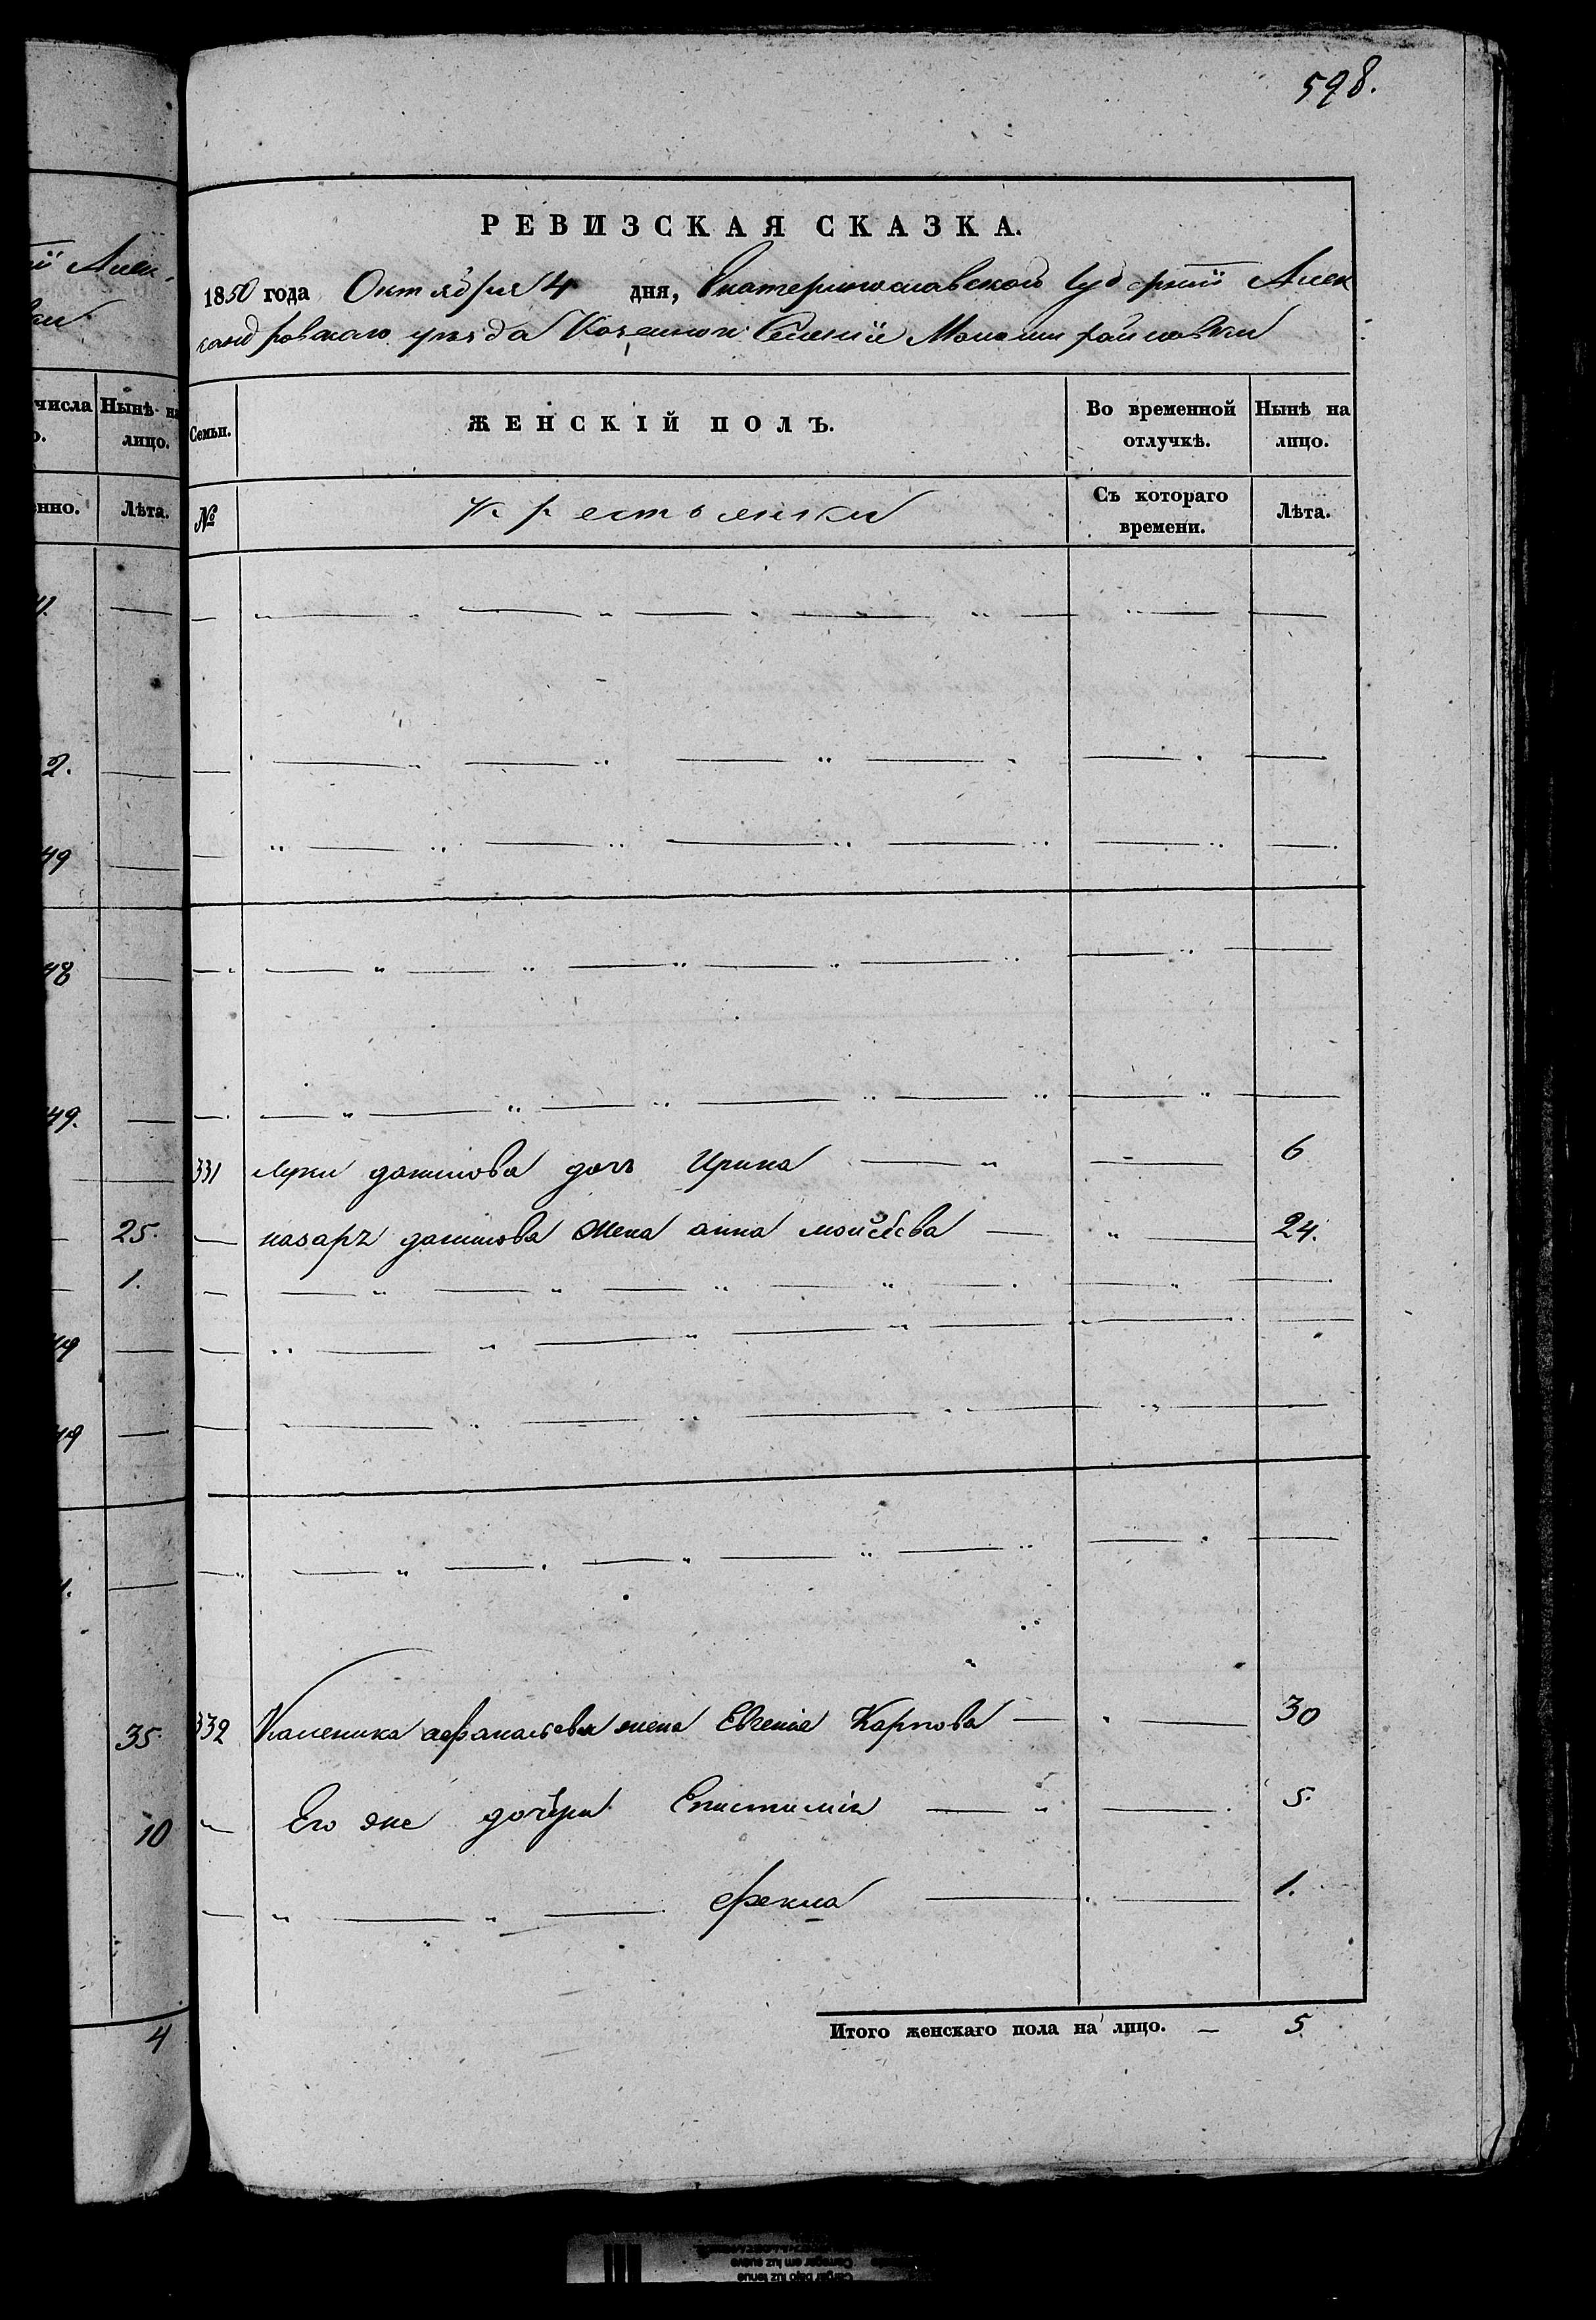 598.
РЕВИЗСКАЯ СКАЗКА.
1850 года Октября 4 дня, Екатеринославской Губернiи Алек
сандровскаго уезда Казенного Селенiя
числа
Нынѣ на
лицо.
нно.
Лѣта.
Семьи.
ЖЕНСКІЙ ПОЛЪ.
Во временной
отлучкѣ.
Нынѣ на
лицо.
№
Крестьянки
Съ котораго
времени.
Лѣта.
2.
49
48
49.
331 Луки данилова дочь Ирина — 6
25.
— назаръ данилова жена анна мойсѣева — 24.
1.
49
49
35.
332 Каленика афанасьева жена Евгенiя Карпова — 30
10
Его же дочери Епистимiя — 5.
— „ — „ — фекла — 1.
4
Итого женскаго пола на лицо. — 5